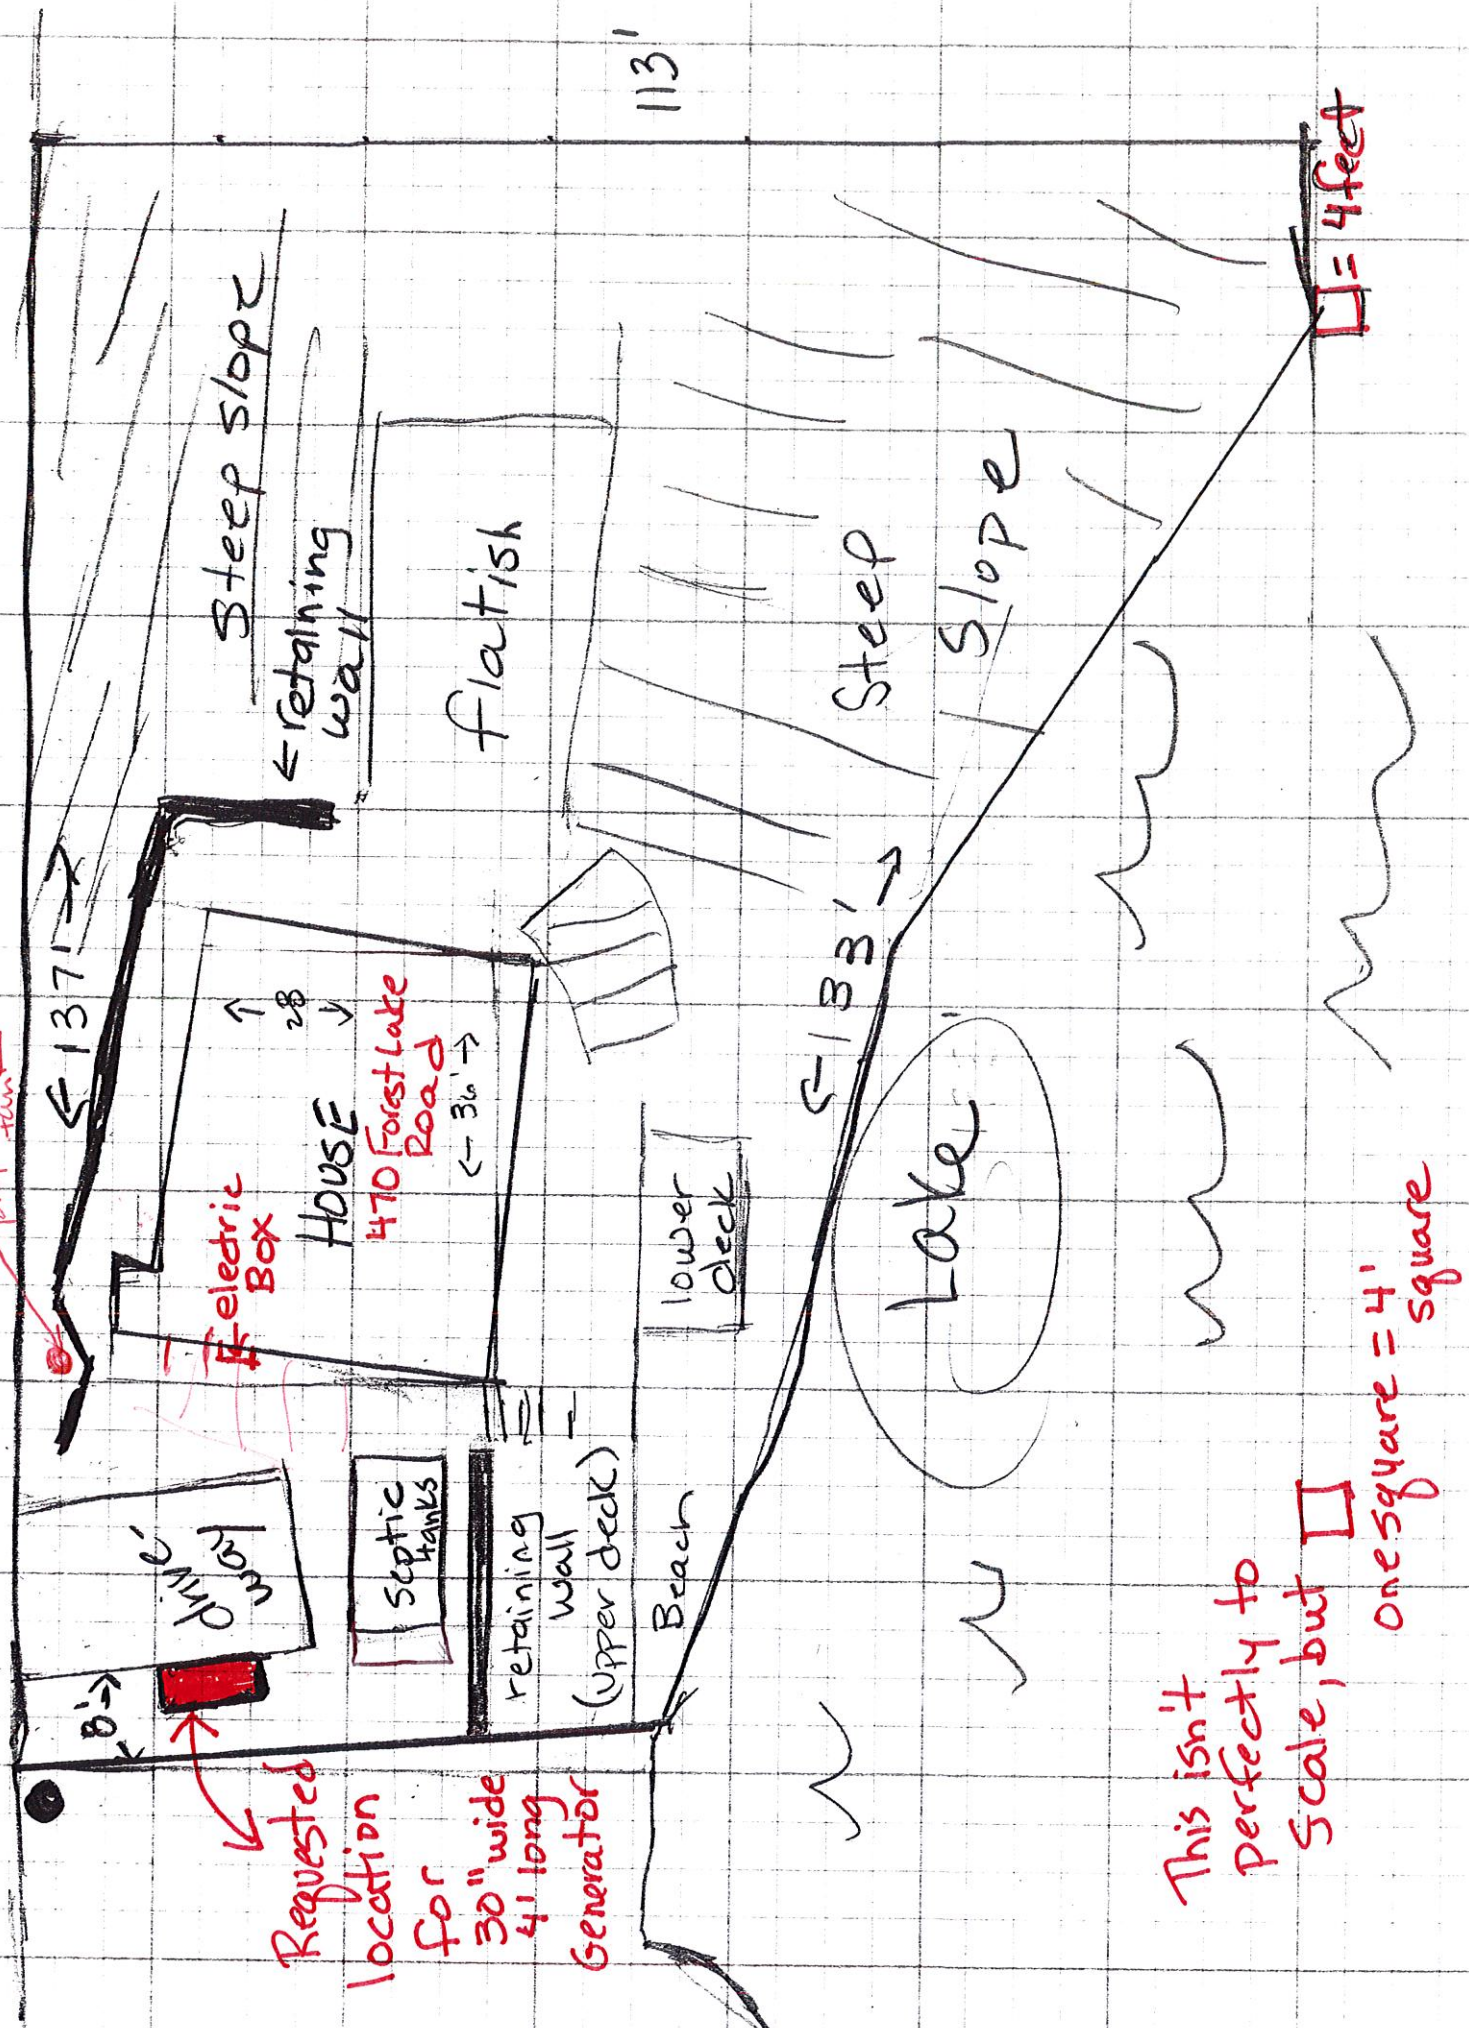 113'
Steep slope
← retaining
wall
flatish
Steep
Slope
□ = 4 feet
← 137' →
↑
28
↓
HOUSE
470 Forest Lake
Road
← 36' →
electric
Box
← 133' →
lower
deck
Lake
drive
way
Septic
tanks
retaining
wall
(upper deck)
Beach
8' →
Requested
location
for
30" wide
4' long
Generator
This isn't
perfectly to
scale, but □
one square = 4'
square